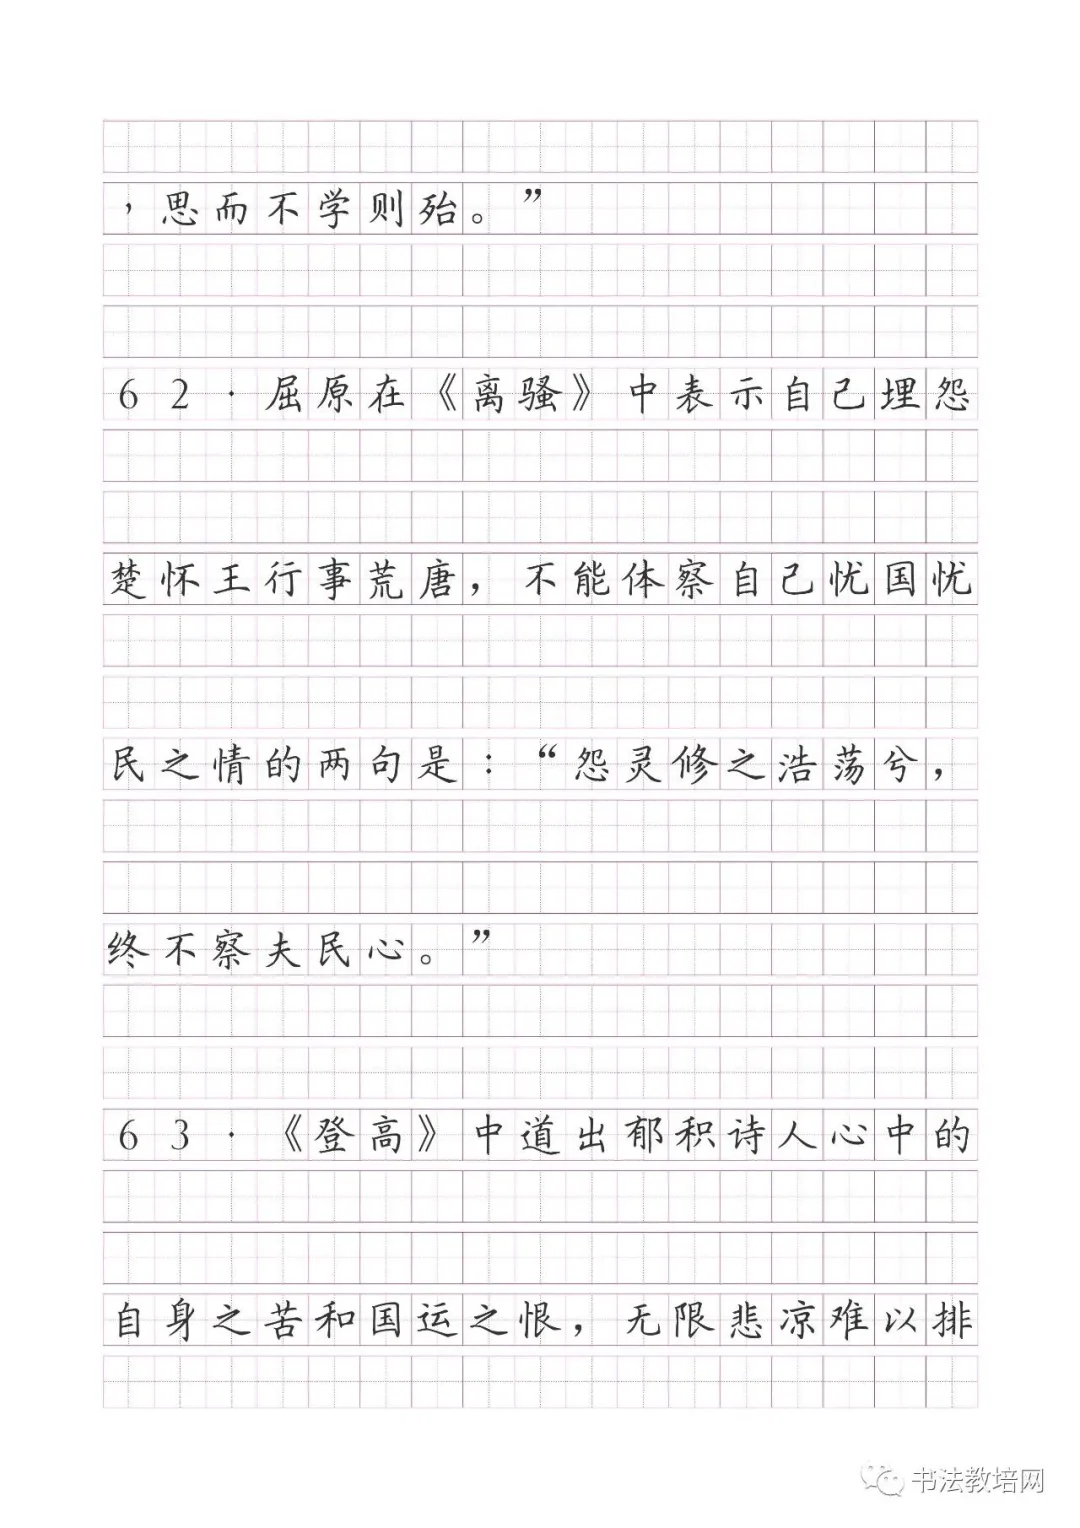 ，思而不学则殆。”
62·屈原在《离骚》中表示自己埋怨
楚怀王行事荒唐，不能体察自己忧国忧
民之情的两句是：“怨灵修之浩荡兮，
终不察夫民心。”
63·《登高》中道出郁积诗人心中的
自身之苦和国运之恨，无限悲凉难以排
书法教培网